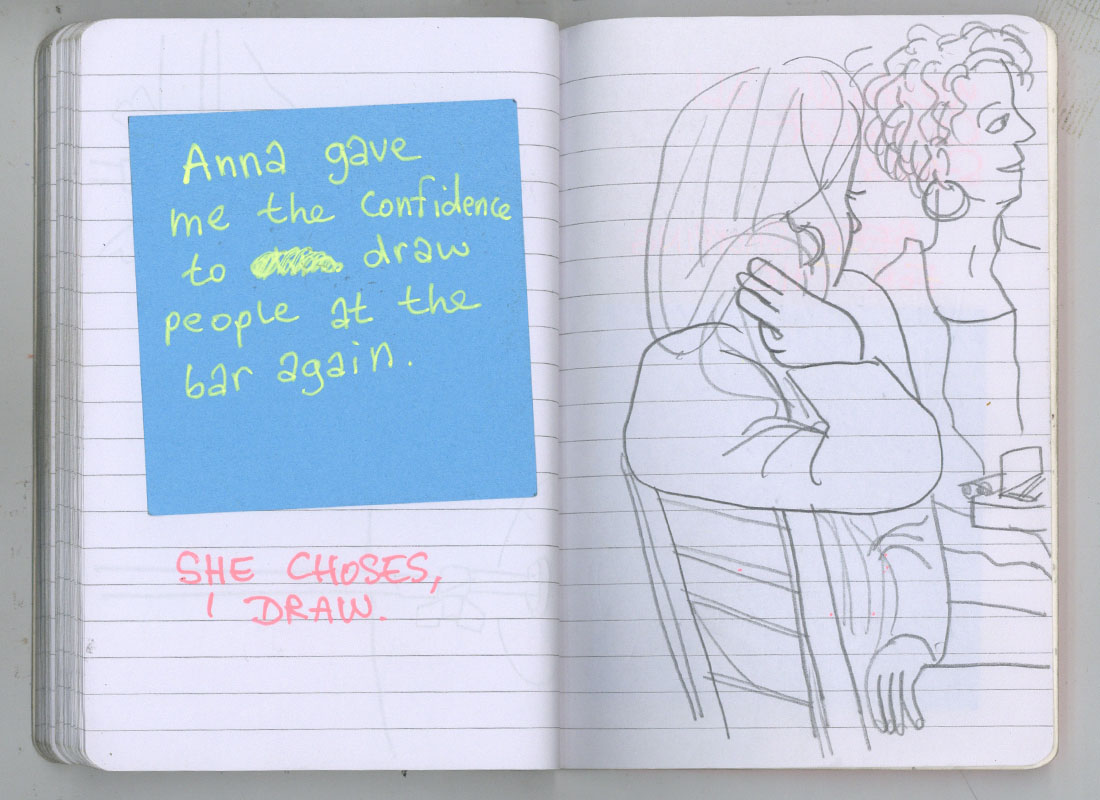 Anna gave
me the confidence
to draw
people at the
bar again.
SHE CHOSES,
I DRAW.